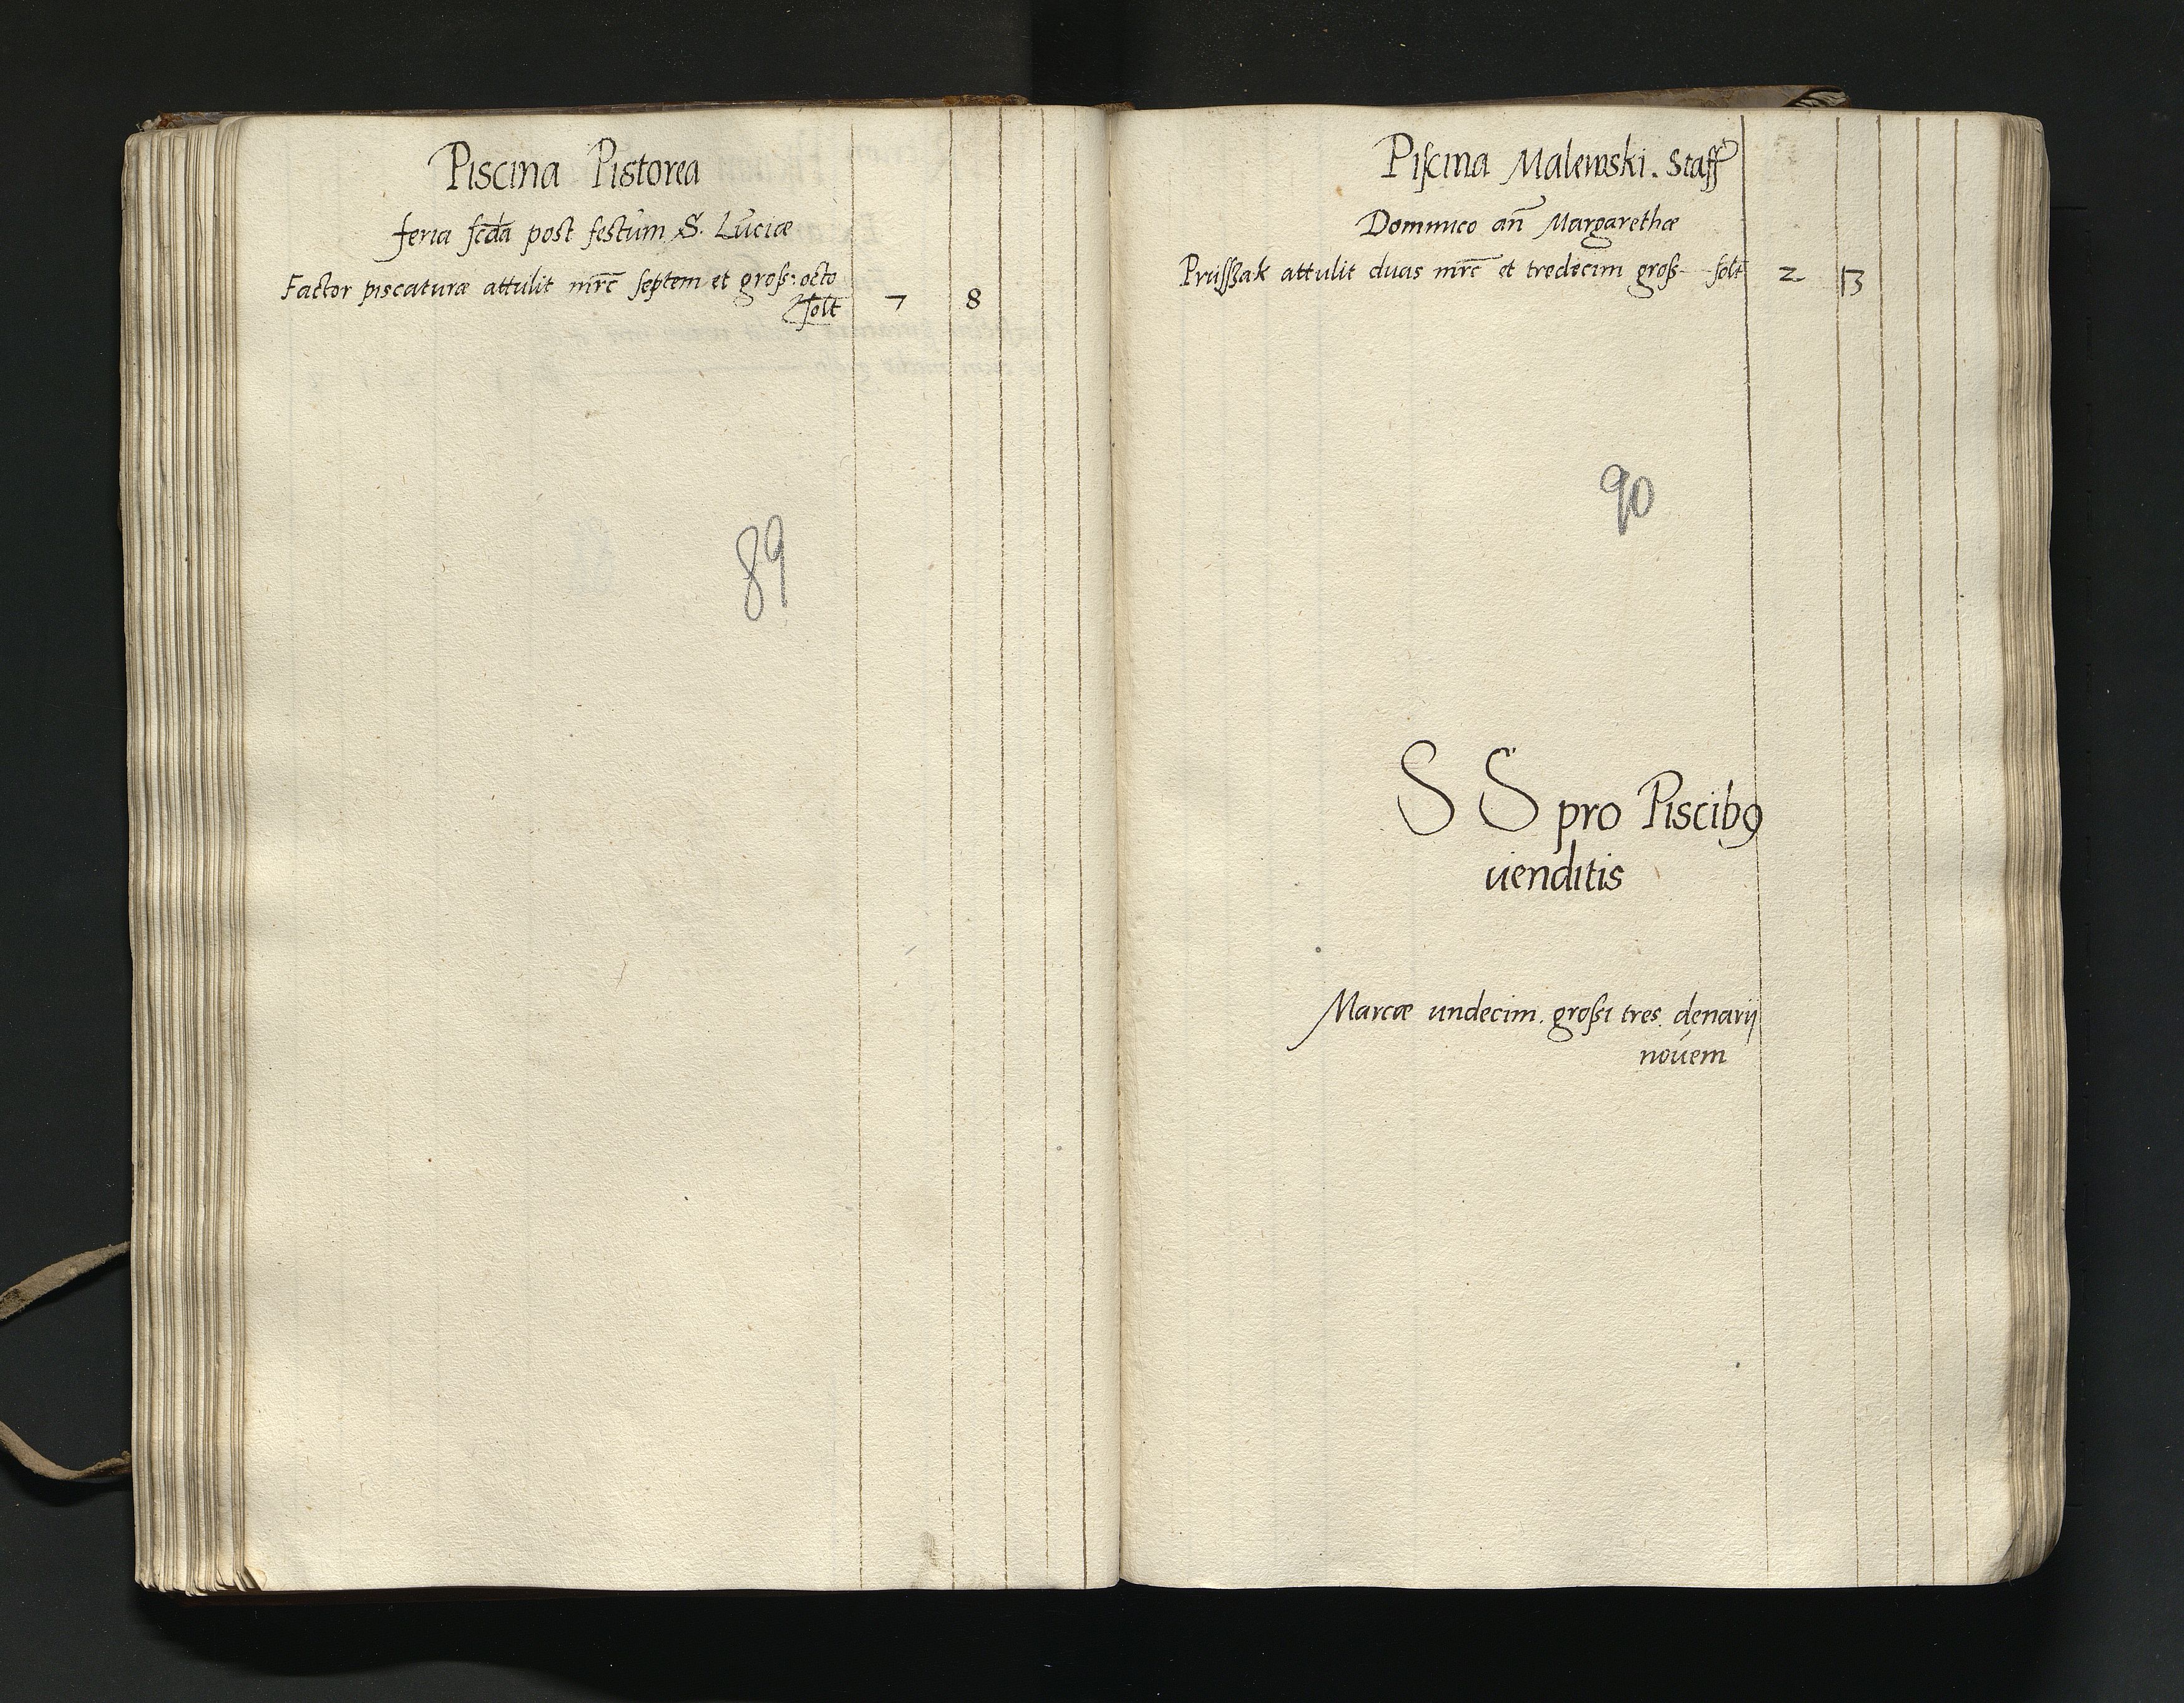 Piscina Pistorea
feria scda post festum S. Luciæ
Factor piscaturæ attulit mrc septem et gross: octo
solt 7 8
89
Piscina Malewski. Staff
Dominico an Margarethæ
Prusszak attulit duas mrc et tredecim gross solt 2 13
90
S S pro Piscib9
uenditis
Marcæ undecim. grossi tres. denarij
nouem